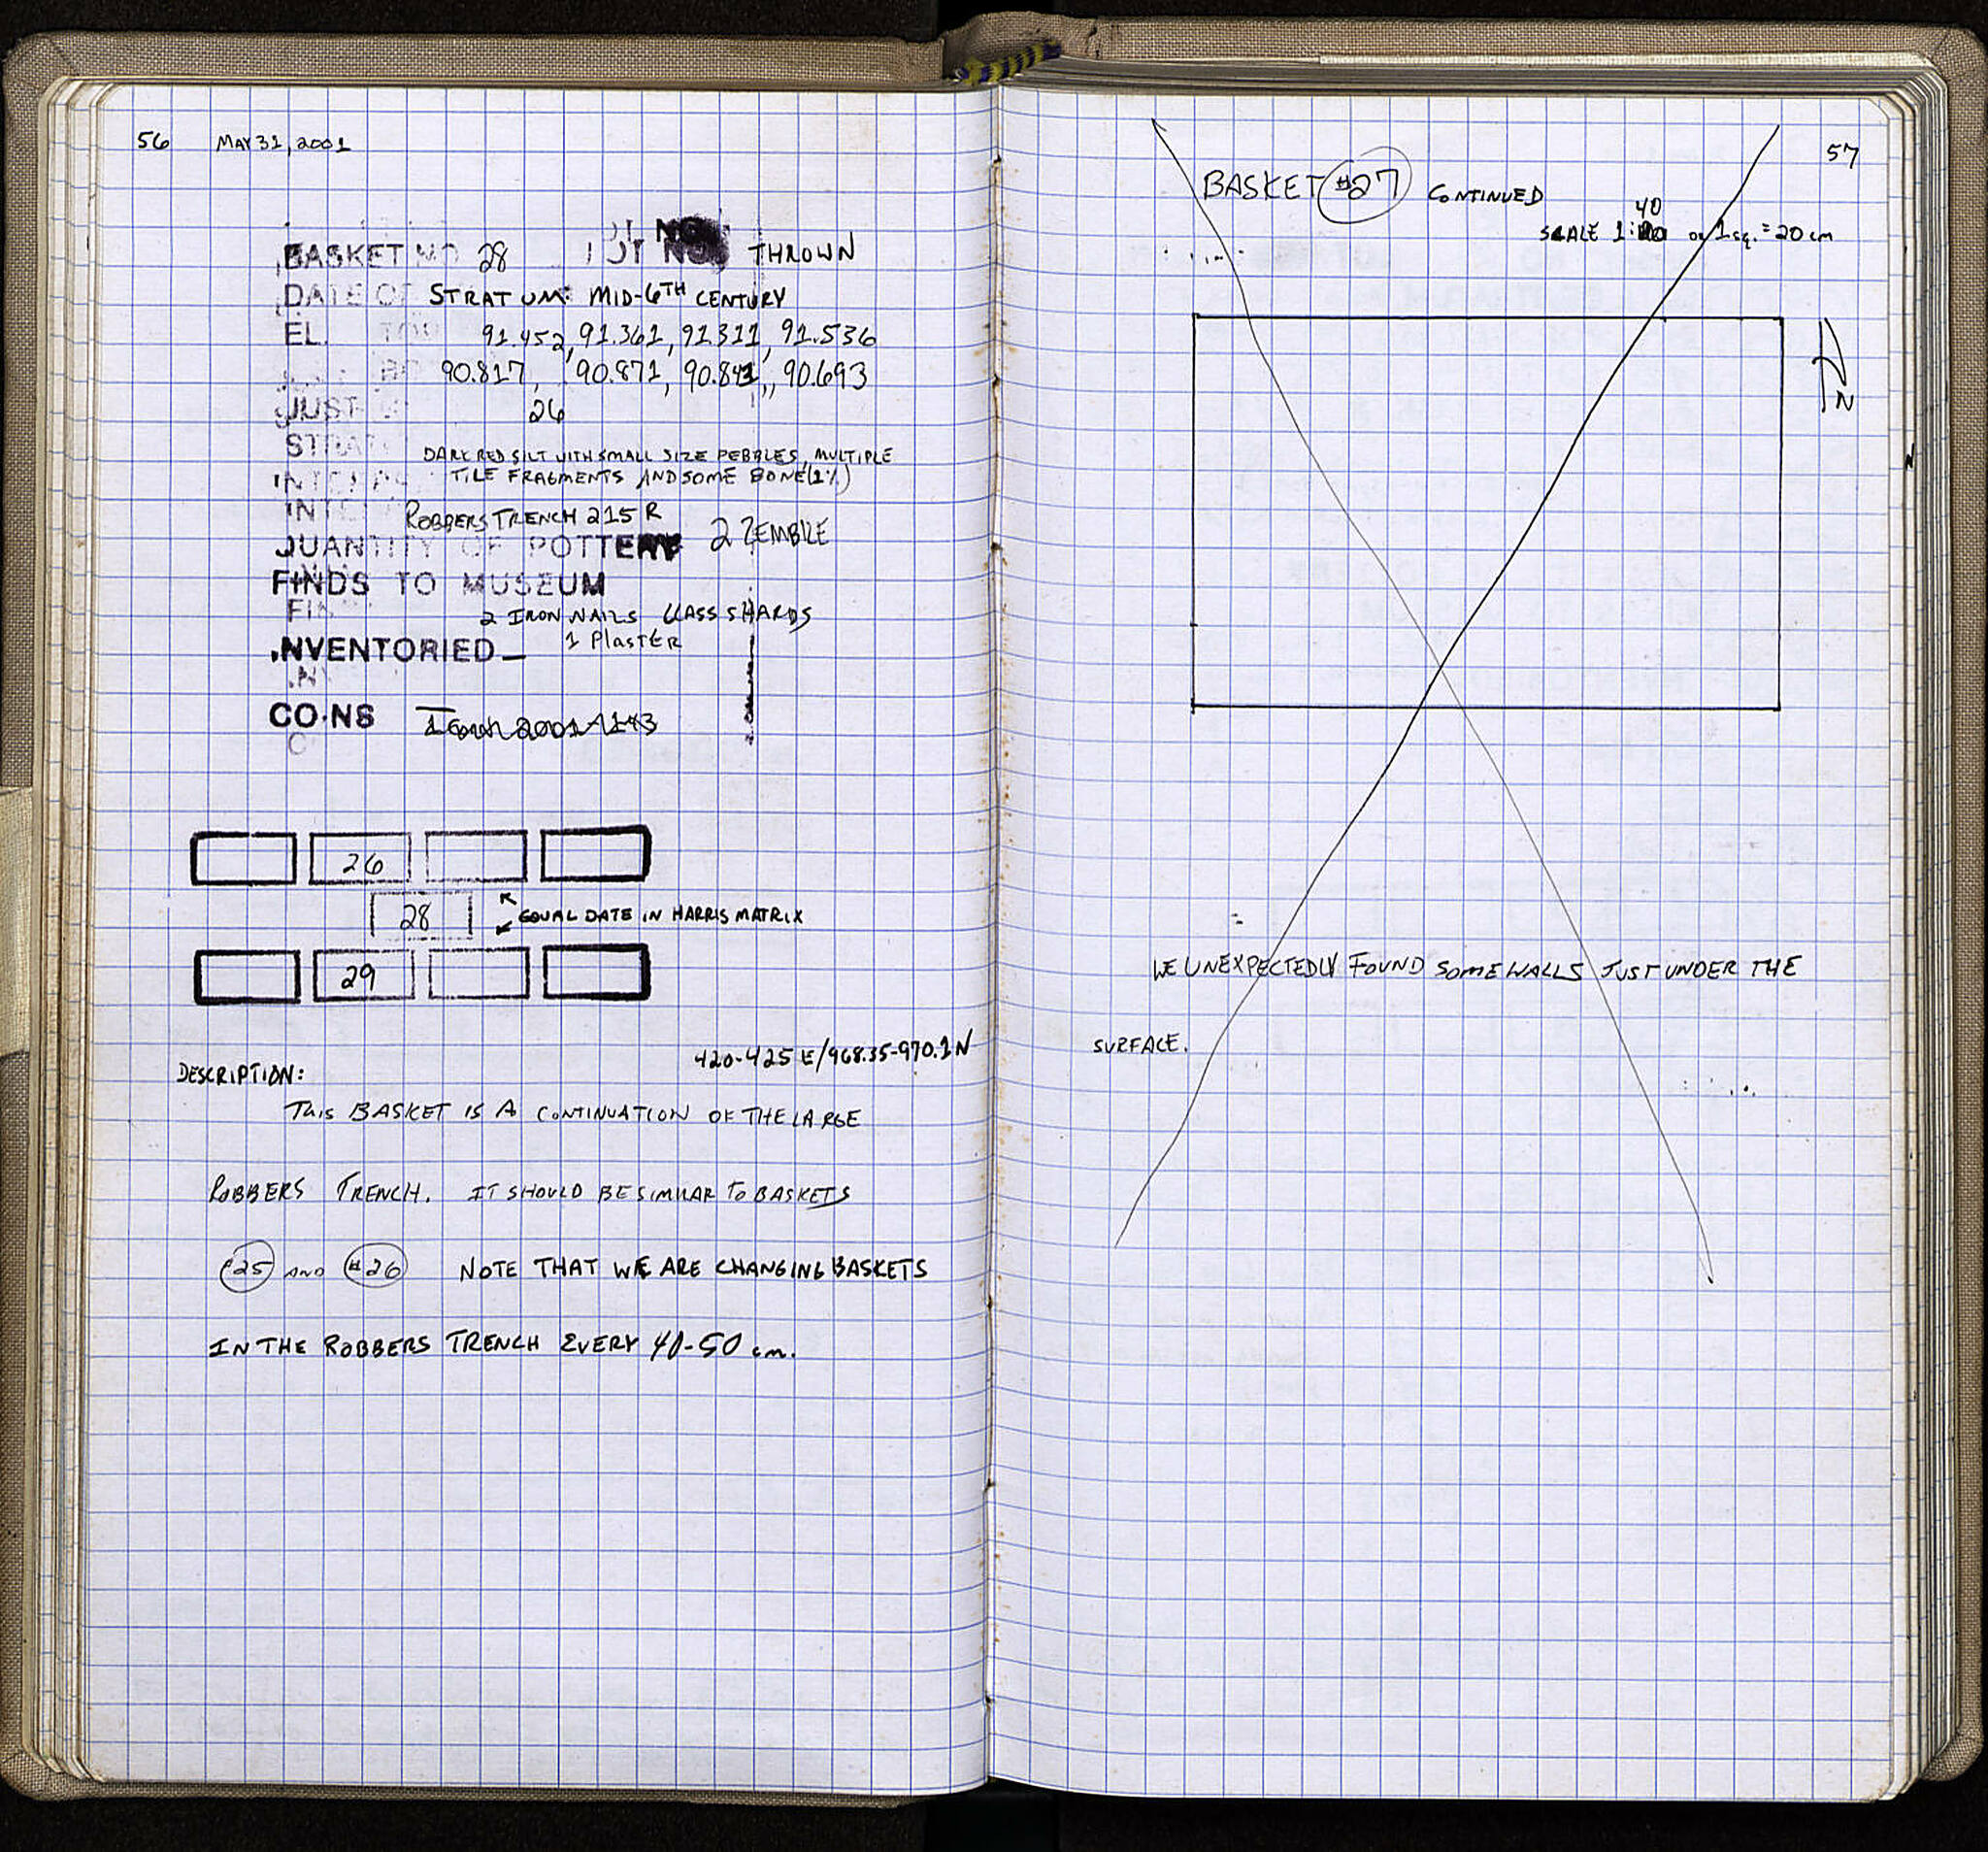 56 MAY 31, 2001
BASKET NO 28 LOT NO. THROWN
DATE OF STRATUM: MID-6TH CENTURY
EL. TOP 91.452, 91.361, 91.311, 91.536
90.817, 90.871, 90.841, 90.693
JUST 26
STRAT
DARK RED SILT WITH SMALL SIZE PEBBLES, MULTIPLE
TILE FRAGMENTS AND SOME BONE (1%)
ROBBERS TRENCH 215 R
QUANTITY OF POTTERY 2 ZEMBILE
FINDS TO MUSEUM
2 IRON NAILS GLASS SHARDS
1 PLASTER
INVENTORIED —
COINS 1 COIN 2001-143
26
28 EQUAL DATE IN HARRIS MATRIX
29
420-425 E/968.35-970.1 N
DESCRIPTION:
THIS BASKET IS A CONTINUATION OF THE LARGE
ROBBERS TRENCH. IT SHOULD BE SIMILAR TO BASKETS
#25 AND #26 NOTE THAT WE ARE CHANGING BASKETS
IN THE ROBBERS TRENCH EVERY 40-50 cm.
57
BASKET #27 CONTINUED
40
SCALE 1: or 1 sq. = 20 cm
N
WE UNEXPECTEDLY FOUND SOME WALLS JUST UNDER THE
SURFACE.